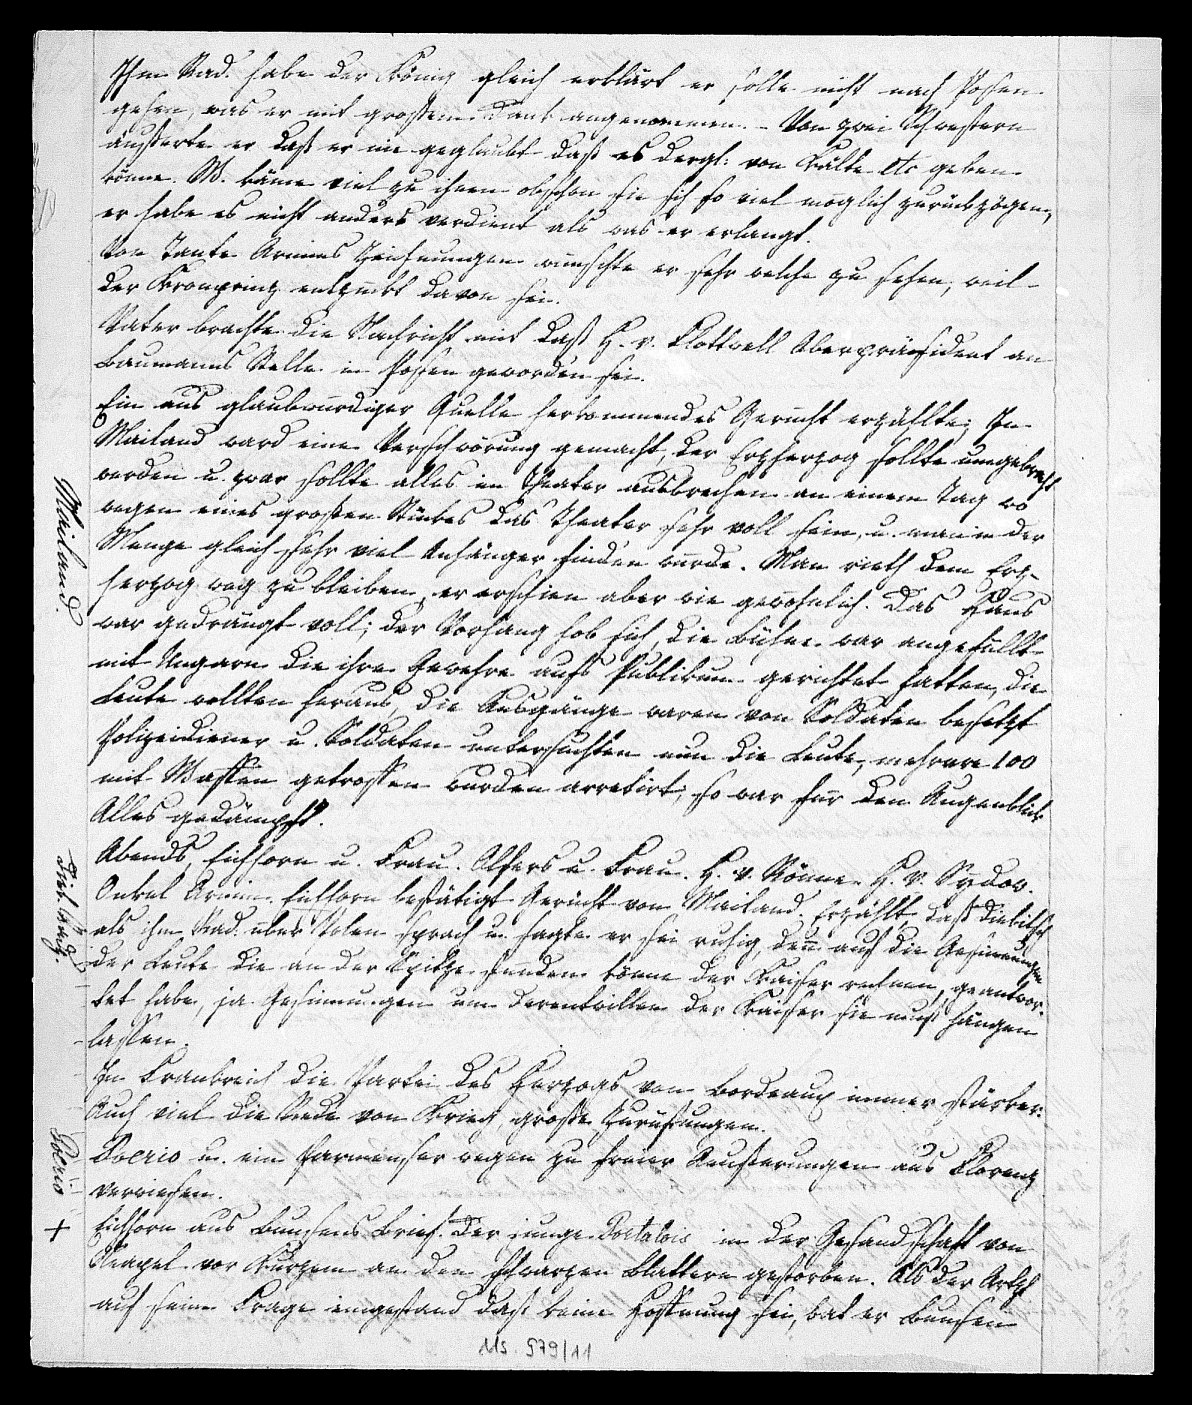 Ihm Rad. habe der König gleich erklärt er solle nicht nach Posen
gehen, was er mit grossem Dank angenommen. – Von zwei Schwestern
äusserte er daß er nie geglaubt daß es dergl. von Kälte etc geben
könne. W. käme viel zu ihnen obschon sie sich so viel möglich zurückzögen,
er habe es nicht anders verdient als was er erlangt.
Von Tante Armins Zeichnungen wünschte er sehr welche zu sehen, weil
der Kronprinz entzückt davon sei.
Vater brachte die Nachricht mit daß H. v. Flottwell Oberpräsident an
Baumanns Stelle in Posen geworden sei.
Ein aus glaubwürdiger Quelle herkommendes Gerücht erzählte: In
Mailand ward eine Verschwörung gemacht, der Erzherzog sollte umgebracht
werden u. zwar sollte alles im Theater ausbrechen an einem Tag wo
wegen eines großen Stückes das Theater sehr voll sein, u. man in der
Menge gleich sehr viel Anhänger finden würde. Man rieth dem Erz-
herzog weg zu bleiben, er erschien aber wie gewöhnlich. Das Haus
war gedrängt voll; der Vorhang hob sich, die Bühne war angefüllt
mit Ungarn die ihre Gewehre aufs Publikum gerichtet hatten, die
Leute wollten heraus, die Ausgänge waren von Soldaten besetzt
Polizeidiener u. Soldaten untersuchten nun die Leute, mehrere 100
mit Waffen getroffen wurden arretirt; so war für den Augenblick
Alles gedämpft.
Abends, Eichhorn u. Frau. Alfers u. Frau. H. v. Rönne. H. v. Sydow.
Onkel Armin. Eichhorn bestätigt Gerücht von Mailand. Erzählt daß Diebitsch
als ihm Rad. über Polen sprach u. sagte er sei ruhig, den auf die Gesinnungen
der Leute die an der Spitze stünden könne der Kaiser rechnen, geantwor-
tet habe, ja Gesinnungen um derentwillen der Kaiser sie muß hängen
lassen.
In Frankreich die Partei des Herzogs von Bordeaux immer stärker.
Auch viel die Rede von Krieg, große Zurüstungen.
Poerio u. ein Parmenser wegen zu freier Aeußerungen aus Florenz
verwiesen.
Eichhorn aus Bunsens Brief. Der junge Portalois in der Gesandschaft von
Neapel vor Kurzem an den schwarzen Blattern gestorben. Als der Artzt
auf seine Frage eingestand daß keine Hoffnung sei, bat er Bunsen
Mailand.
Poerio
+
Ms. 579/11